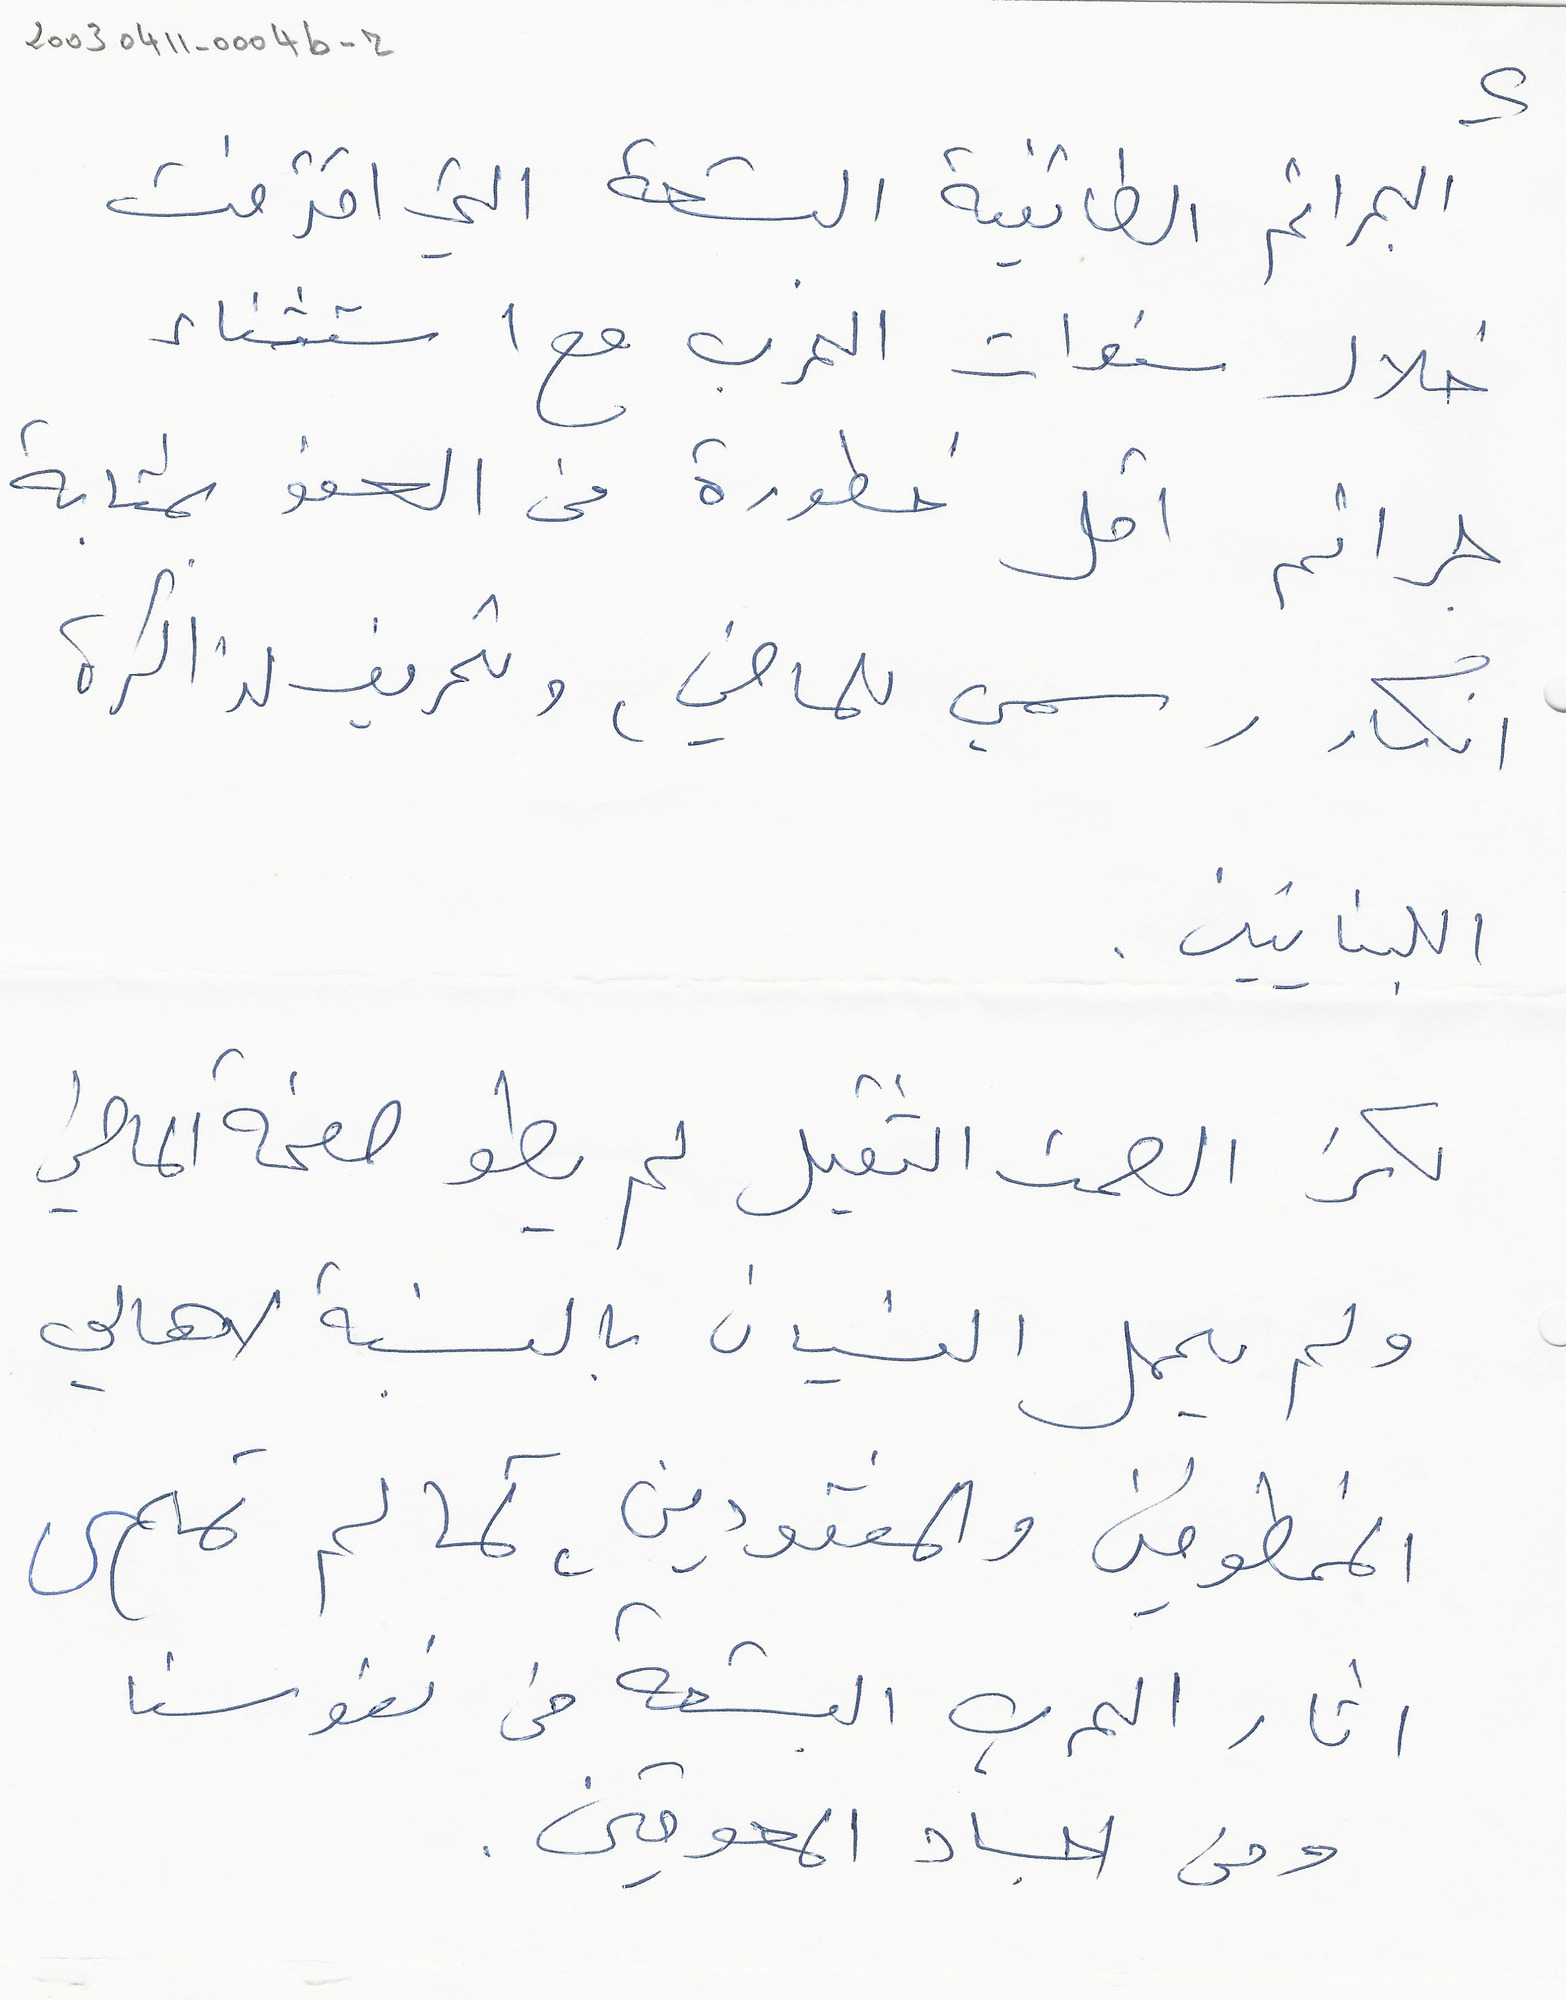 20030411-0004b-2
2
الجرائم الطائفية البشعة التي اقترفت
خلال سنوات الحرب مع استثناء
جرائم اقل خطورة من العفو بمثابة
انكار رسمي للماضي، وتحريف لذاكرة
اللبنانيين.
لكن الصمت الثقيل لم يطو صفحة الماضي
ولم يحمل النسيان بالنسبة لاهالي
المخطوفين والمفقودين، كما لم تمحى
اثار الحرب البشعة من نفوسنا
ومن اجساد المعوقين.